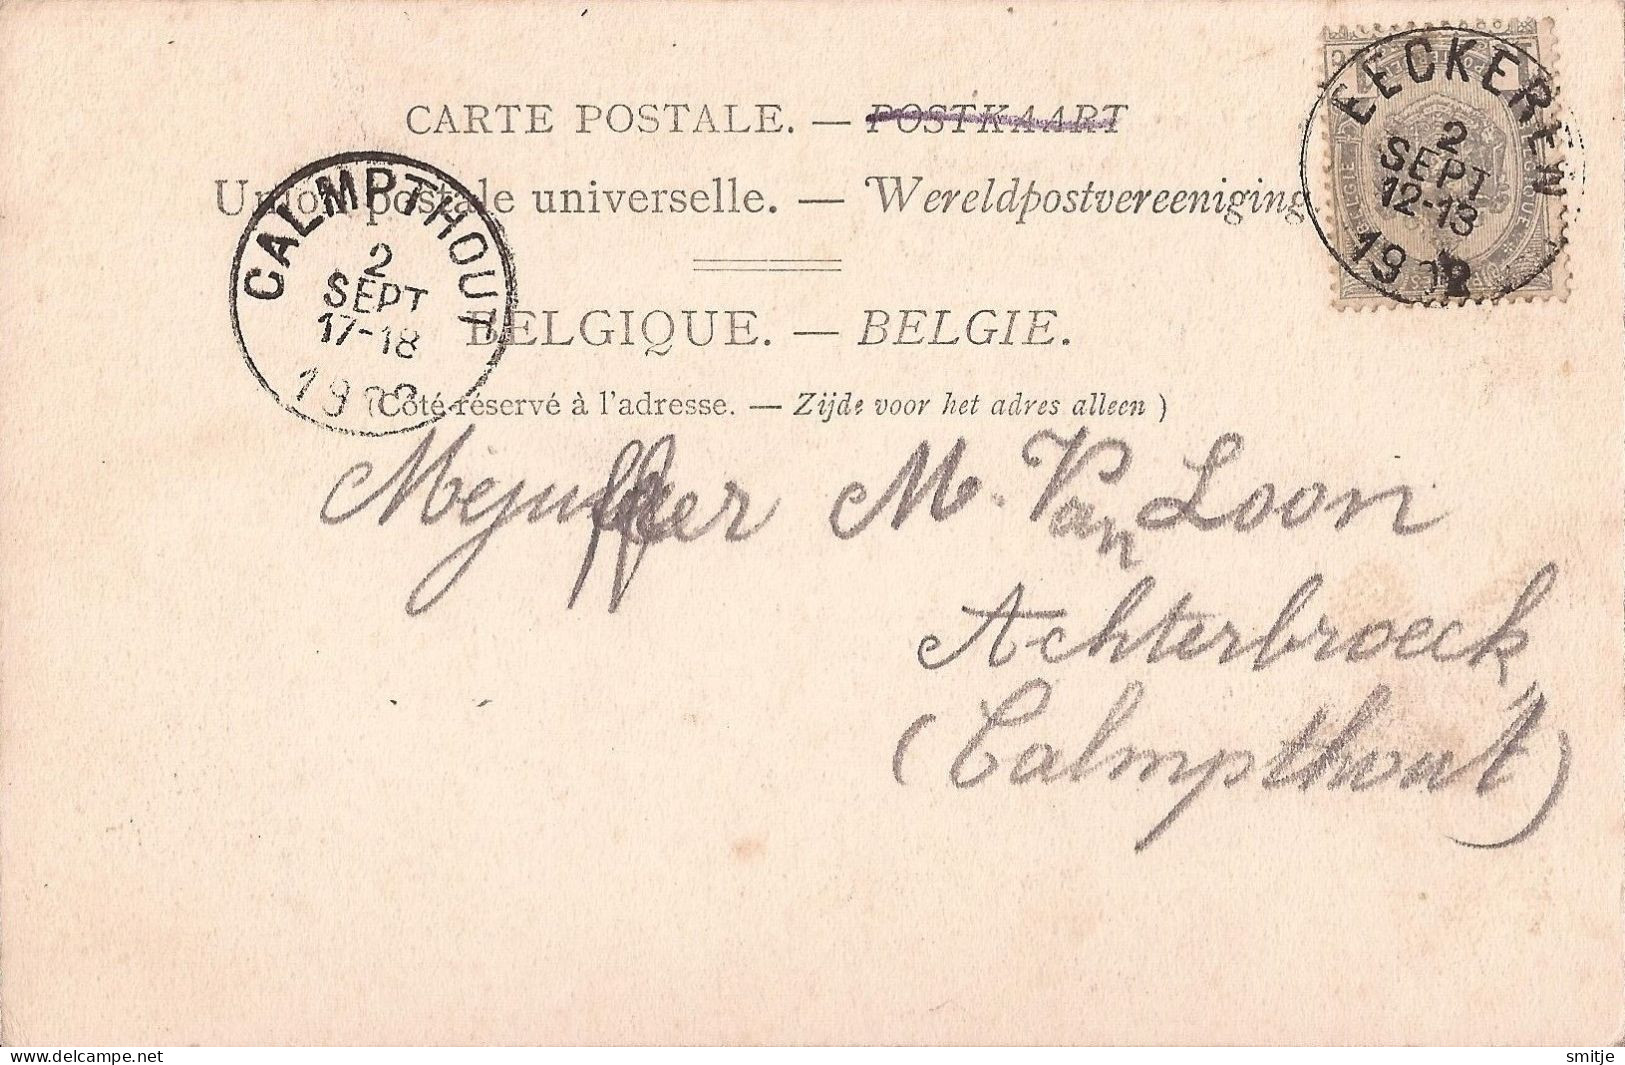 CARTE POSTALE. — POSTKAART
Union postale universelle. — Wereldpostvereeniging
BELGIQUE. — BELGIE.
(Côté réservé à l'adresse. — Zijde voor het adres alleen)
EECKEREN
2
SEPT
12-13
CALMPTHOUT
2
SEPT
17-18
Mejuffer M. Van Loon
Achterbroeck
(Calmpthout)
delcampe.net
smitje